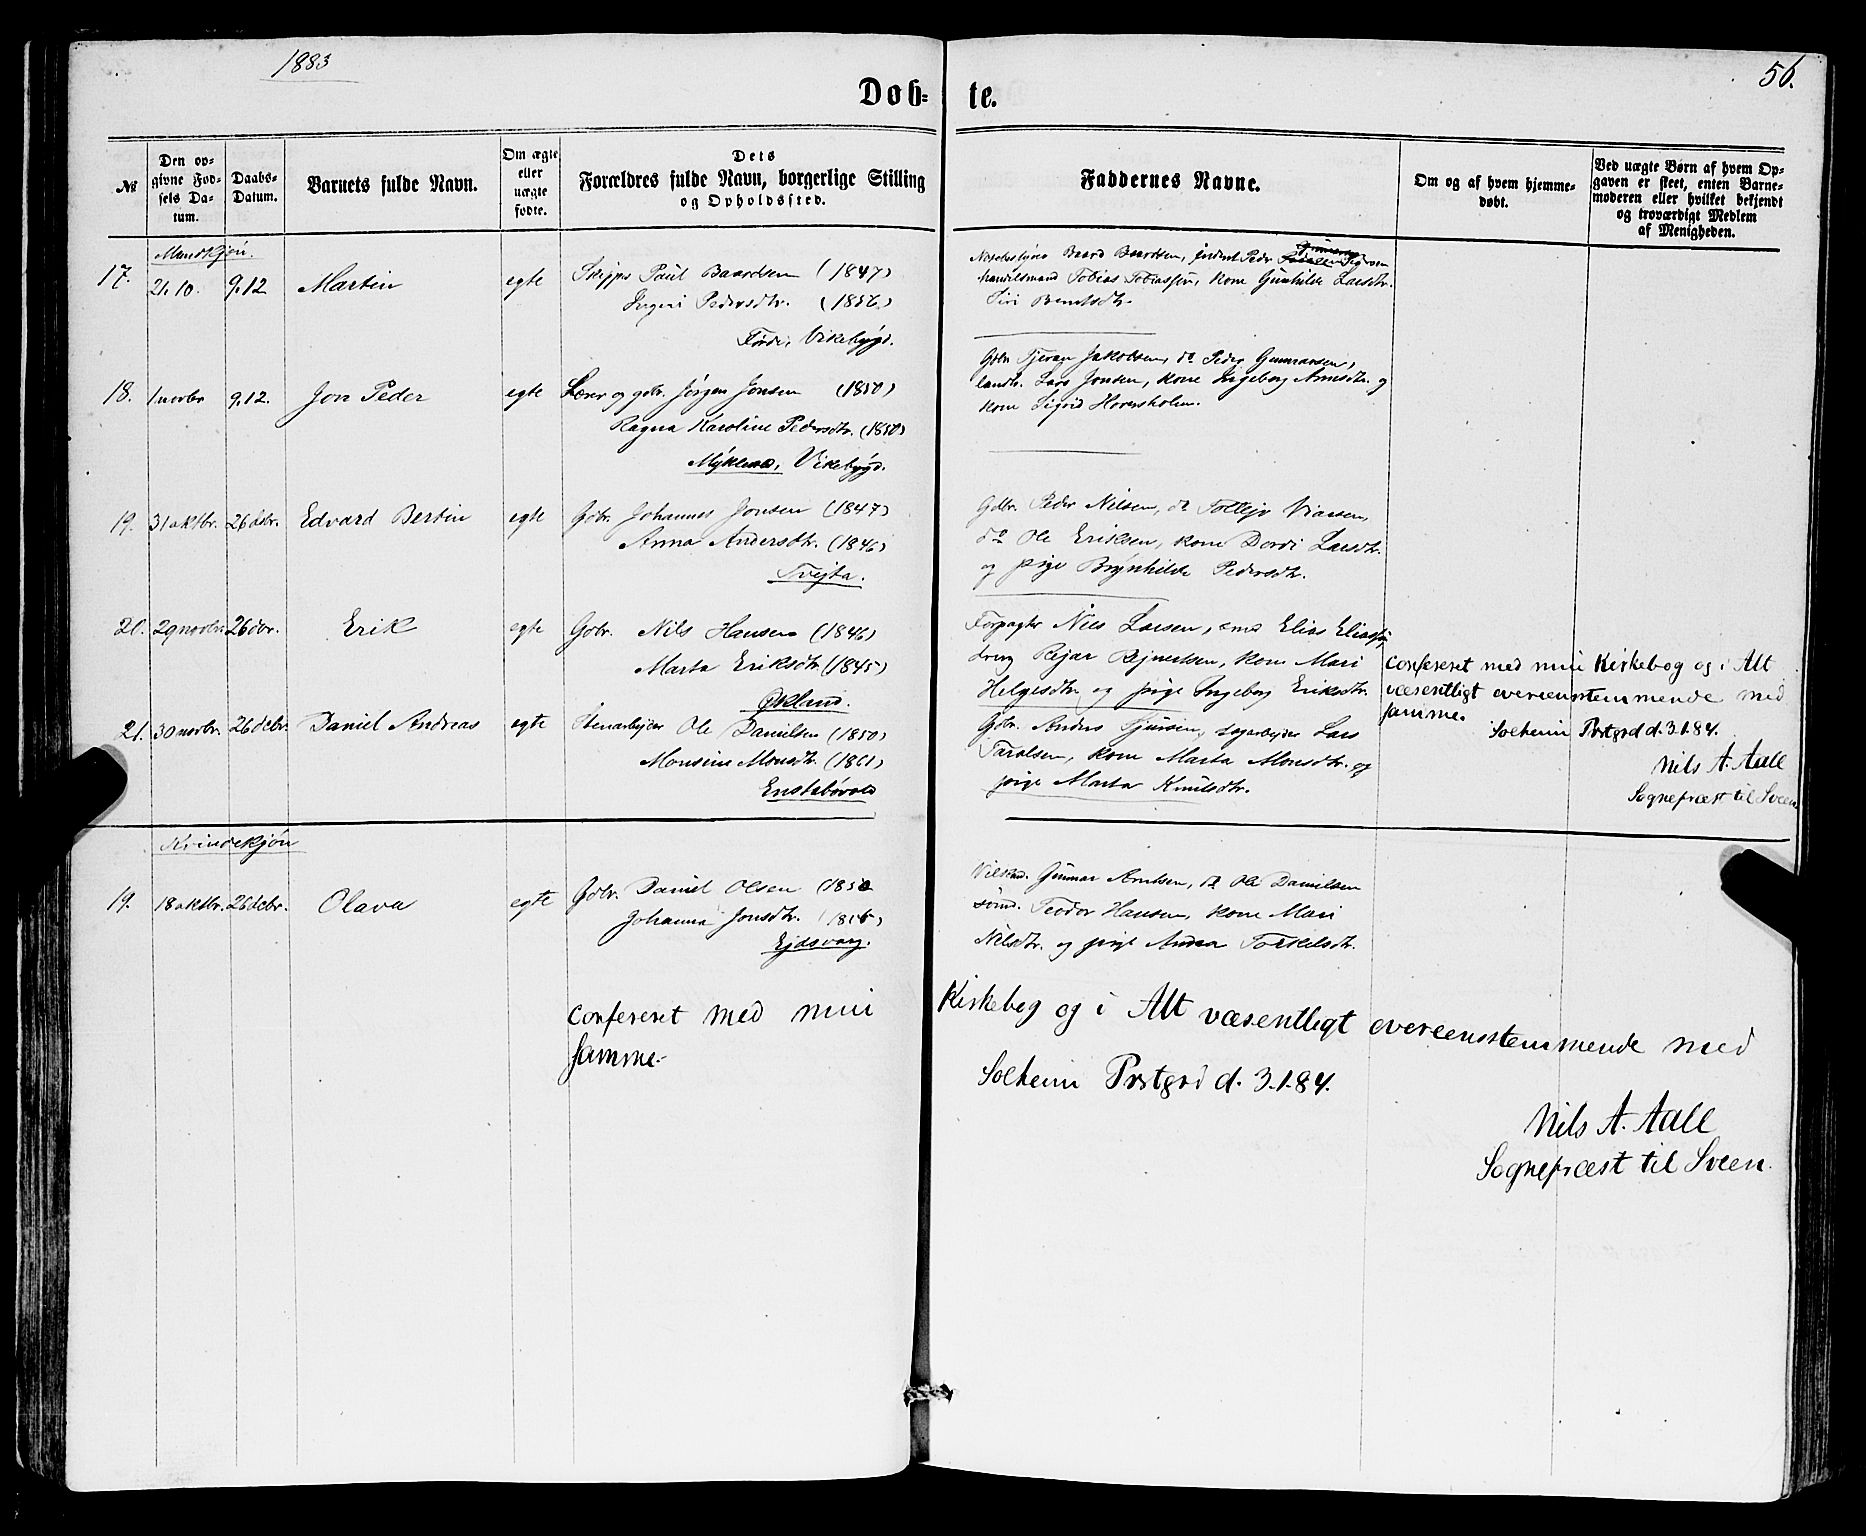 1883
56.
Døb- te.
№
Den op-
givne Fød-
sels Da-
tum.
Daabs-
Datum.
Barnets fulde Navn.
Om ægte
eller
uægte
fødte.
Dets
Forældres fulde Navn, borgerlige Stilling
og Opholdssted.
Faddernes Navne.
Om og af hvem hjemme-
døbt.
Ved uægte Børn af hvem Op-
gaven er skeet, enten Barne-
moderen eller hvilket bekjendt
og troværdigt Medlem
af Menigheden.
Mandkjøn.
17. 21.10. 9.12 Martin egte Skipps Paul Baardsen (1847)
Ingeri Pedersdtr. (1856)
Førde, Vikebygd.
Baard Baardsen, Peder
Tobias Tobiassen, kone Gunhilde Larsdtr.
Siri Berntsdtr.
18. 1 novbr 9.12. Jon Peder egte Lærer og gbr. Jørgen Jonsen (1850)
Ragna Karoline Pedersdtr. (1850)
Vikebygd.
Gdbr Jakobsen, do Peder Gunnarsen,
Lars Jonsen, kone Ingeborg Arnesdtr. og
kone Sigrid Hoversholm.
19. 31 oktbr. 26 debr. Edvard Bertin egte Gdbr. Johannes Jonsen (1847)
Anna Andersdtr. (1846)
Tvejta.
Gdbr. Peder Nilsen, do Tollejv
do Ole Eriksen, kone Dordi Larsdtr.
og pige Brynhilde Pedersdtr.
20. 29 novbr. 26 dbr. Erik egte Gdbr. Nils Hansen (1846)
Marta Eriksdtr. (1845)
Økland.
Forpagter Nils Larsen, Elias
dreng Rejar Rejnertsen, kone Mari
Helgesdtr. og pige Ingeborg Eriksdtr.
21. 30 novbr. 26 debr. Daniel Andreas egte Stenarbejder Ole Danielsen (1850)
Monsine Monsdtr. (1861)
Enstabøvold
Gbr. Anders Lars
Taralsen, kone Marta Monsdtr. og
pige Marta Knutsdtr.
Confereret med min Kirkebog og i Alt
væsentligt overeensstemmende med
samme.
Solheim Prstgrd d. 3.1.84.
Nils A. Aall
Sognepræst til Sveen
Kvindekjøn
19. 18 oktbr. 26 debr. Olava egte Gdbr. Daniel Olsen (1850
Johanna Jonsdtr.
Ejdsvaag.
Gunnar do Ole Danielsen
Teodor Hansen, kone Mari
Nilsdtr. og pige Anna Torkelsdtr.
Confereret med min Kirkebog og i Alt væsentligt overeensstemmende med
samme.
Solheim Prstgrd d. 3.1.84.
Nils A. Aall
Sognepræst til Sveen.